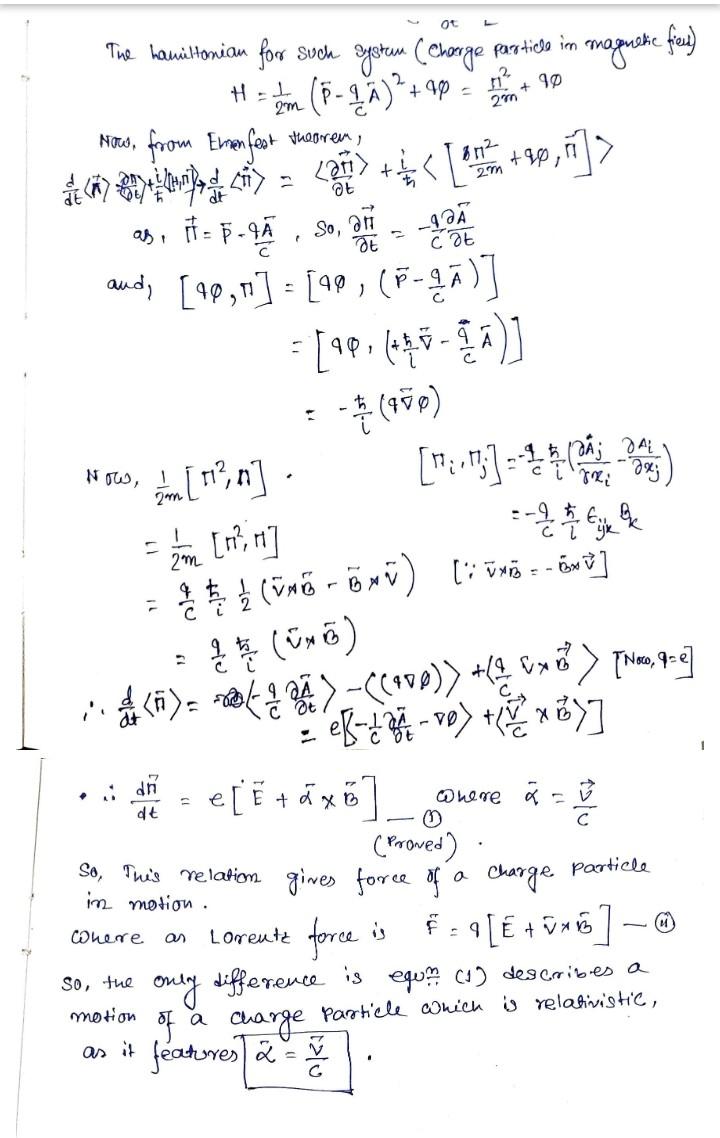 The hamiltonian for such system (charge particle in magnetic field)
H = 1/2m (p̄ - q/c Ā)² + qφ = Π²/2m + qφ
Now, from Ehrenfest theorem,
d/dt <Π⃗> = <∂Π⃗/∂t> + i/ħ <[Π²/2m + qφ, Π⃗]>
as, Π⃗ = p̄ - qĀ/c, So, ∂Π⃗/∂t = -q/c ∂Ā/∂t
and, [qφ, Π] = [qφ, (p̄ - q/c Ā)]
= [qφ, (+ħ/i ∇̄ - q/c Ā)]
= - ħ/i (q∇̄φ)
Now, 1/2m [Π², Π] . [Πi, Πj] = -q/c ħ/i (∂Aj/∂xi - ∂Ai/∂xj)
= 1/2m [Π², Π] = -q/c ħ/i ϵijk Bk
= q/c ħ/i 1/2 (v̄×B̄ - B̄×v̄) [∵ v̄×B̄ = -B̄×v⃗]
= q/c ħ/i (v̄×B̄)
∴ d/dt <Π̄> = <-q/c ∂Ā/∂t> - <(q∇φ)> + <q/c v̄×B⃗> [Now, q=e]
= e[<-1/c ∂Ā/∂t - ∇φ> + <v⃗/c × B⃗>]
• ∴ dΠ⃗/dt = e[Ē + ᾱ×B̄] — (1) where ᾱ = v⃗/c
(Proved) .
So, This relation gives force of a charge particle
in motion .
where as Lorentz force is F̄ = q[Ē + v̄×B̄] — (11)
So, the only difference is equn (1) describes a
motion of a charge particle which is relativistic,
as it features ᾱ = v̄/c .